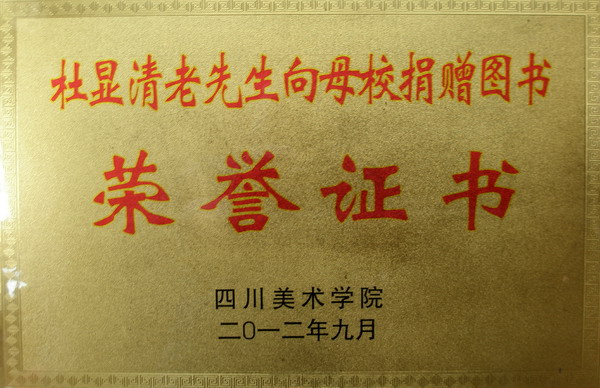 杜显清老先生向母校捐赠图书
荣誉证书
四川美术学院
二〇一二年九月